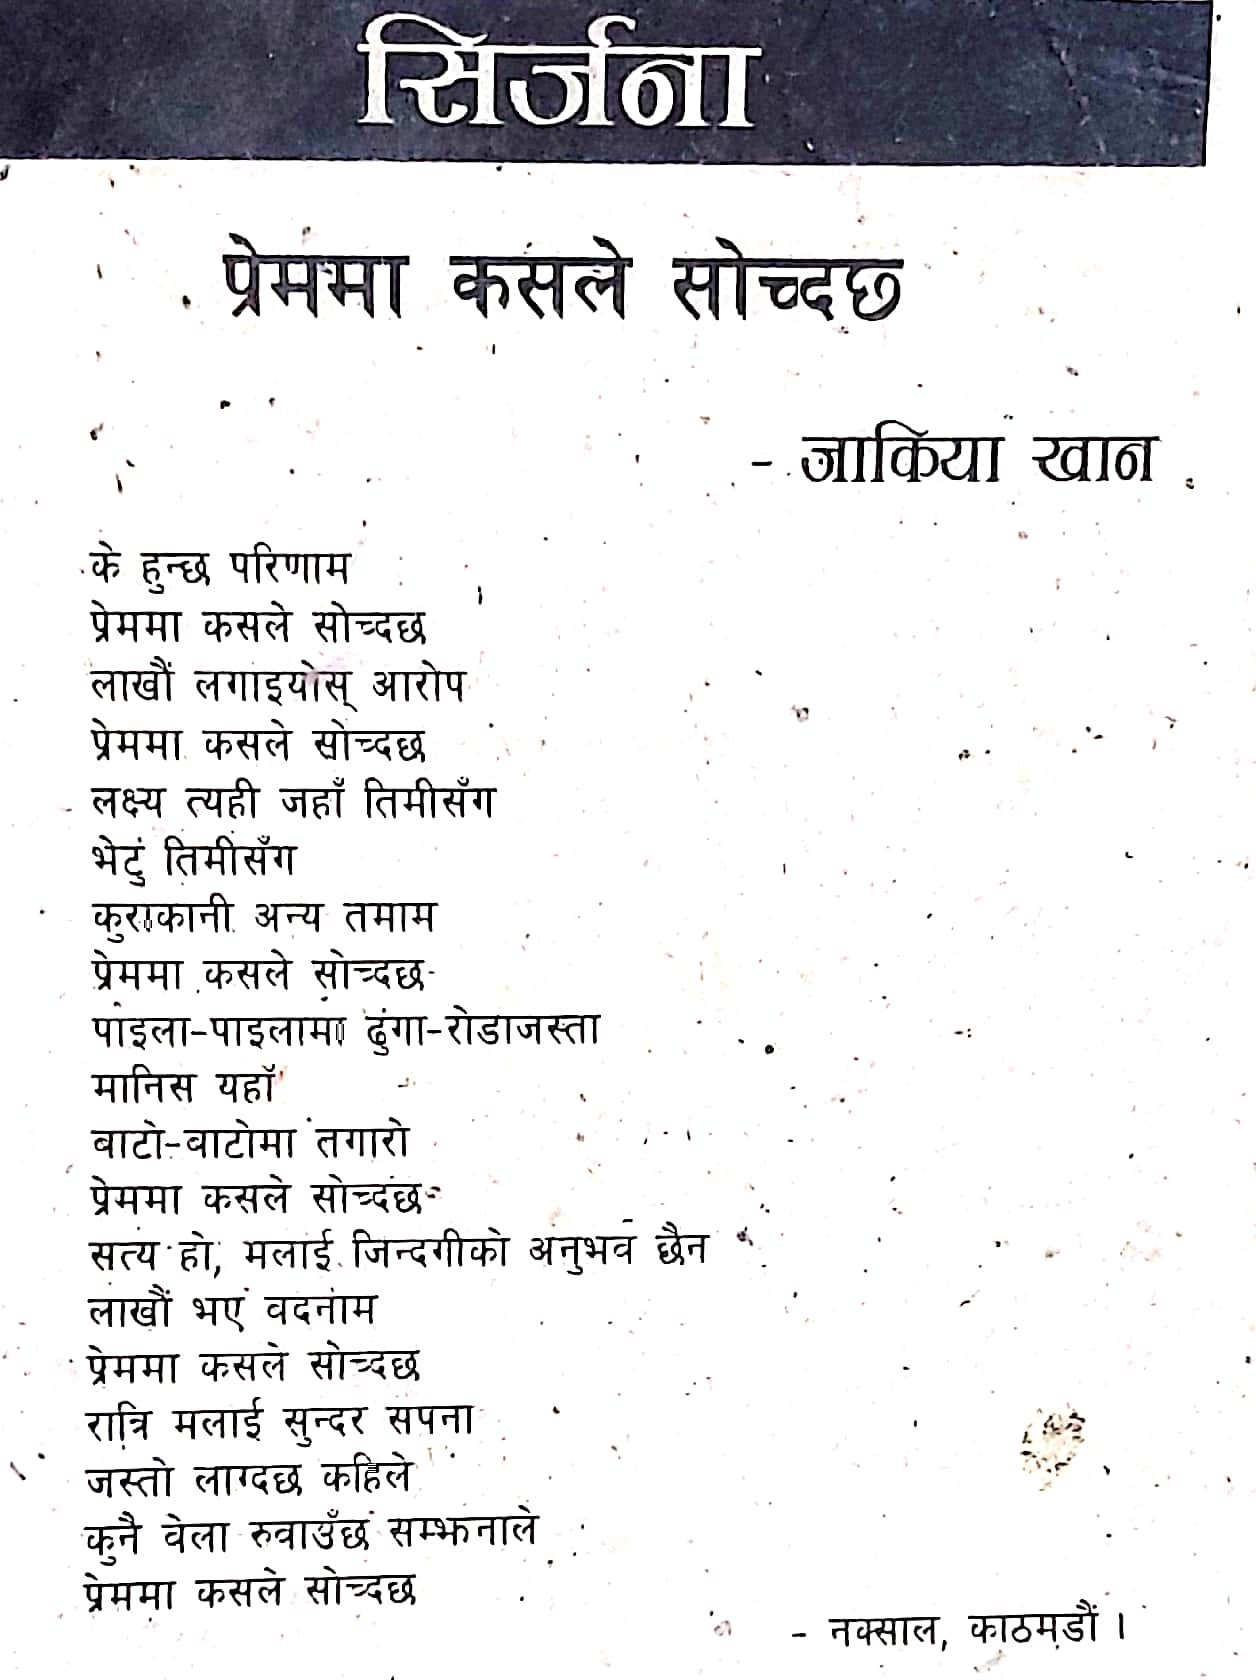 सिर्जना
प्रेममा कसले सोच्दछ
- जाकिया खान
के हुन्छ परिणाम
प्रेममा कसले सोच्दछ
लाखौं लगाइयोस् आरोप
प्रेममा कसले सोच्दछ
लक्ष्य त्यही जहाँ तिमीसँग
भेटुं तिमीसँग
कुराकानी अन्य तमाम
प्रेममा कसले सोच्दछ
पाइला-पाइलामा ढुंगा-रोडाजस्ता
मानिस यहाँ
बाटो-बाटोमा तगारो
प्रेममा कसले सोच्दछ
सत्य हो, मलाई जिन्दगीको अनुभव छैन
लाखौं भएं वदनाम
प्रेममा कसले सोच्दछ
रात्रि मलाई सुन्दर सपना
जस्तो लाग्दछ कहिले
कुनै वेला रुवाउँछ सम्झनाले
प्रेममा कसले सोच्दछ
- नक्साल, काठमडौं ।